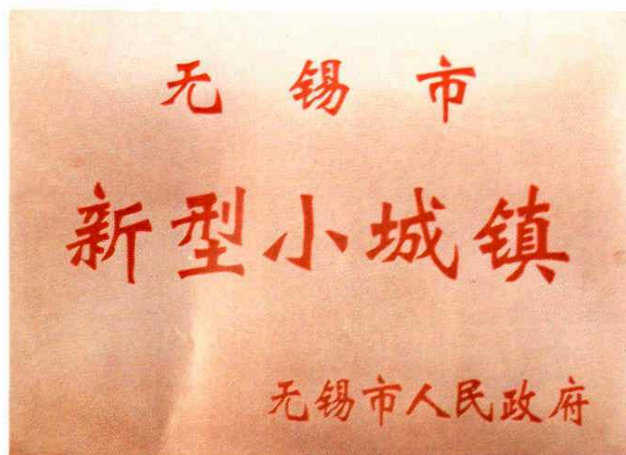 无锡市
新型小城镇
无锡市人民政府